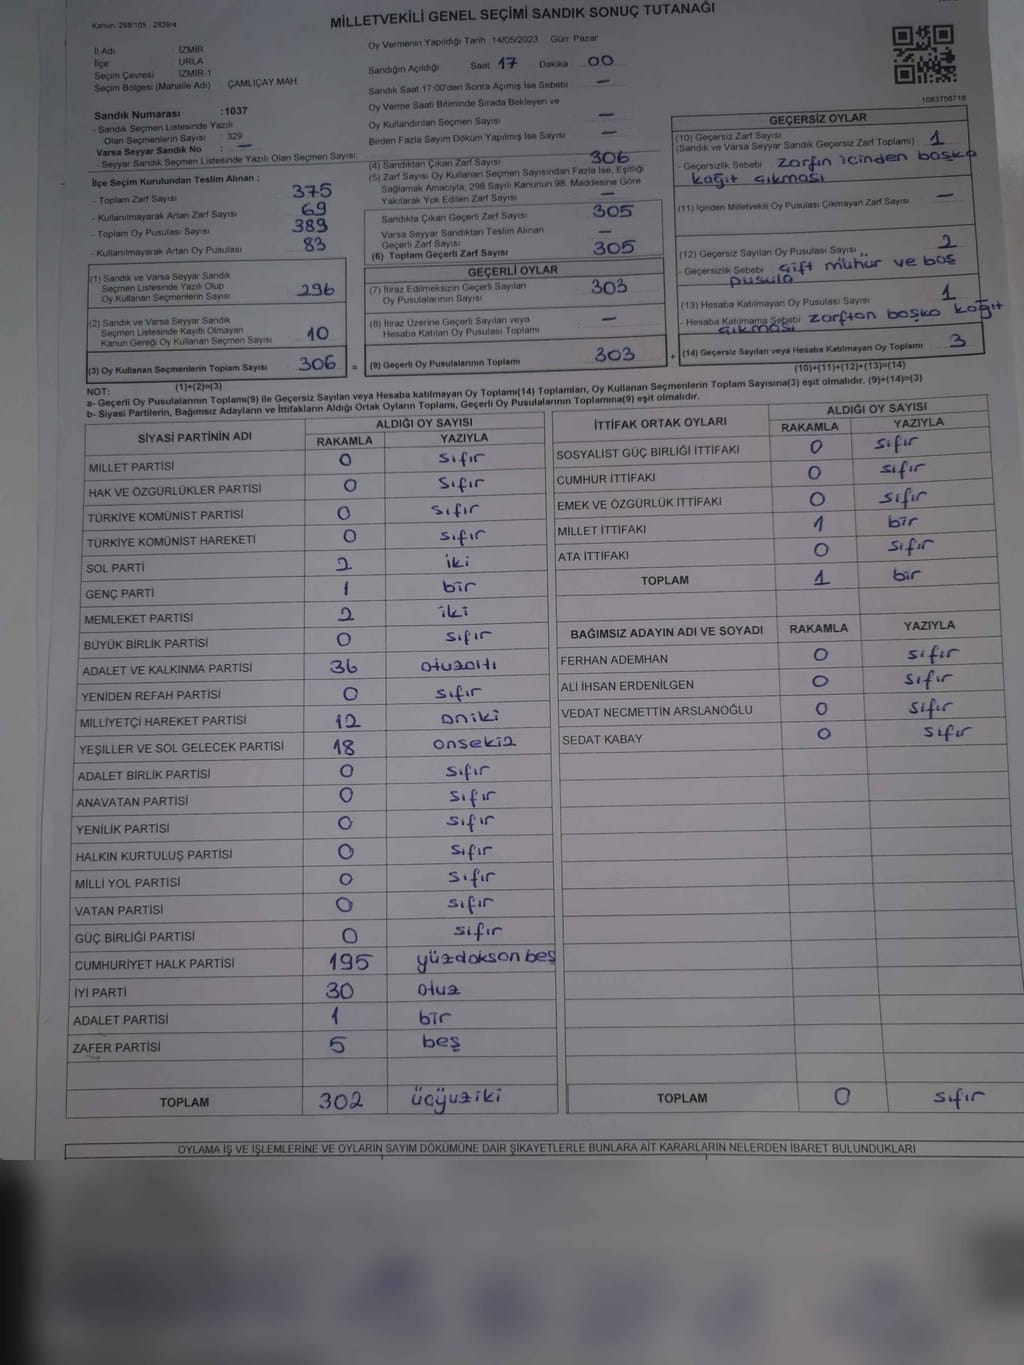 Kanun: 298/105 , 2839/4
MİLLETVEKİLİ GENEL SEÇİMİ SANDIK SONUÇ TUTANAĞI
İl Adı : İZMİR
İlçe : URLA
Seçim Çevresi : İZMİR-1
Seçim Bölgesi (Mahalle Adı) : ÇAMLIÇAY MAH
Oy Vermenin Yapıldığı Tarih :14/05/2023 Gün: Pazar
Sandığın Açıldığı Saat 17 Dakika 00
Sandık Saat 17:00'den Sonra Açımış İse Sebebi —
Oy Verme Saati Bitiminde Sırada Bekleyen ve
Oy Kullandırılan Seçmen Sayısı —
Birden Fazla Sayım Döküm Yapılmış İse Sayısı —
1083756718
Sandık Numarası :1037
- Sandık Seçmen Listesinde Yazılı
Olan Seçmenlerin Sayısı 329
Varsa Seyyar Sandık No : —
- Seyyar Sandık Seçmen Listesinde Yazılı Olan Seçmen Sayısı:
İlçe Seçim Kurulundan Teslim Alınan ;
- Toplam Zarf Sayısı 375
- Kullanılmayarak Artan Zarf Sayısı 69
- Toplam Oy Pusulası Sayısı 389
- Kullanılmayarak Artan Oy Pusulası 83
(1) Sandık ve Varsa Seyyar Sandık
Seçmen Listesinde Yazılı Olup
Oy Kullanan Seçmenlerin Sayısı 296
(2) Sandık ve Varsa Seyyar Sandık
Seçmen Listesinde Kayıtlı Olmayan
Kanun Gereği Oy Kullanan Seçmen Sayısı 10
(3) Oy Kullanan Seçmenlerin Toplam Sayısı 306 =
(1)+(2)=(3)
(4) Sandıktan Çıkan Zarf Sayısı 306
(5) Zarf Sayısı Oy Kullanan Seçmen Sayısından Fazla İse, Eşitliği
Sağlamak Amacıyla, 298 Sayılı Kanunun 98. Maddesine Göre
Yakılarak Yok Edilen Zarf Sayısı —
Sandıkta Çıkan Geçerli Zarf Sayısı 305
Varsa Seyyar Sandıktan Teslim Alınan
Geçerli Zarf Sayısı —
(6) Toplam Geçerli Zarf Sayısı 305
GEÇERLİ OYLAR
(7) İtiraz Edilmeksizin Geçerli Sayılan
Oy Pusulalarının Sayısı 303
(8) İtiraz Üzerine Geçerli Sayılan veya
Hesaba Katılan Oy Pusulası Toplamı —
(9) Geçerli Oy Pusulalarının Toplamı 303 +
GEÇERSİZ OYLAR
(10) Geçersiz Zarf Sayısı
(Sandık ve Varsa Seyyar Sandık Geçersiz Zarf Toplamı) : 1
- Geçersizlik Sebebi zarfın içinden başka
kağıt çıkması
(11) İçinden Milletvekili Oy Pusulası Çıkmayan Zarf Sayısı —
(12) Geçersiz Sayılan Oy Pusulası Sayısı 2
- Geçersizlik Sebebi çift mühür ve boş
pusula
(13) Hesaba Katılmayan Oy Pusulası Sayısı 1
- Hesaba Katılmama Sebebi zarftan başka kağıt
çıkması
(14) Geçersiz Sayılan veya Hesaba Katılmayan Oy Toplamı 3
(10)+(11)+(12)+(13)=(14)
NOT:
a- Geçerli Oy Pusulalarının Toplamı(9) ile Geçersiz Sayılan veya Hesaba katılmayan Oy Toplamı(14) Toplamları, Oy Kullanan Seçmenlerin Toplam Sayısına(3) eşit olmalıdır. (9)+(14)=(3)
b- Siyasi Partilerin, Bağımsız Adayların ve İttifakların Aldığı Ortak Oyların Toplamı, Geçerli Oy Pusulalarının Toplamına(9) eşit olmalıdır.
SİYASİ PARTİNİN ADI ALDIĞI OY SAYISI
RAKAMLA YAZIYLA
MİLLET PARTİSİ 0 sıfır
HAK VE ÖZGÜRLÜKLER PARTİSİ 0 sıfır
TÜRKİYE KOMÜNİST PARTİSİ 0 sıfır
TÜRKİYE KOMÜNİST HAREKETİ 0 sıfır
SOL PARTİ 2 iki
GENÇ PARTİ 1 bir
MEMLEKET PARTİSİ 2 iki
BÜYÜK BİRLİK PARTİSİ 0 sıfır
ADALET VE KALKINMA PARTİSİ 36 otuzaltı
YENİDEN REFAH PARTİSİ 0 sıfır
MİLLİYETÇİ HAREKET PARTİSİ 12 oniki
YEŞİLLER VE SOL GELECEK PARTİSİ 18 onsekiz
ADALET BİRLİK PARTİSİ 0 sıfır
ANAVATAN PARTİSİ 0 sıfır
YENİLİK PARTİSİ 0 sıfır
HALKIN KURTULUŞ PARTİSİ 0 sıfır
MİLLİ YOL PARTİSİ 0 sıfır
VATAN PARTİSİ 0 sıfır
GÜÇ BİRLİĞİ PARTİSİ 0 sıfır
CUMHURİYET HALK PARTİSİ 195 yüzdokson beş
İYİ PARTİ 30 otuz
ADALET PARTİSİ 1 bir
ZAFER PARTİSİ 5 beş
TOPLAM 302 üçyüziki
İTTİFAK ORTAK OYLARI ALDIĞI OY SAYISI
RAKAMLA YAZIYLA
SOSYALİST GÜÇ BİRLİĞİ İTTİFAKI 0 sıfır
CUMHUR İTTİFAKI 0 sıfır
EMEK VE ÖZGÜRLÜK İTTİFAKI 0 sıfır
MİLLET İTTİFAKI 1 bir
ATA İTTİFAKI 0 sıfır
TOPLAM 1 bir
BAĞIMSIZ ADAYIN ADI VE SOYADI RAKAMLA YAZIYLA
FERHAN ADEMHAN 0 sıfır
ALİ İHSAN ERDENİLGEN 0 sıfır
VEDAT NECMETTİN ARSLANOĞLU 0 sıfır
SEDAT KABAY 0 sıfır
TOPLAM 0 sıfır
OYLAMA İŞ VE İŞLEMLERİNE VE OYLARIN SAYIM DÖKÜMÜNE DAİR ŞİKAYETLERLE BUNLARA AİT KARARLARIN NELERDEN İBARET BULUNDUKLARI